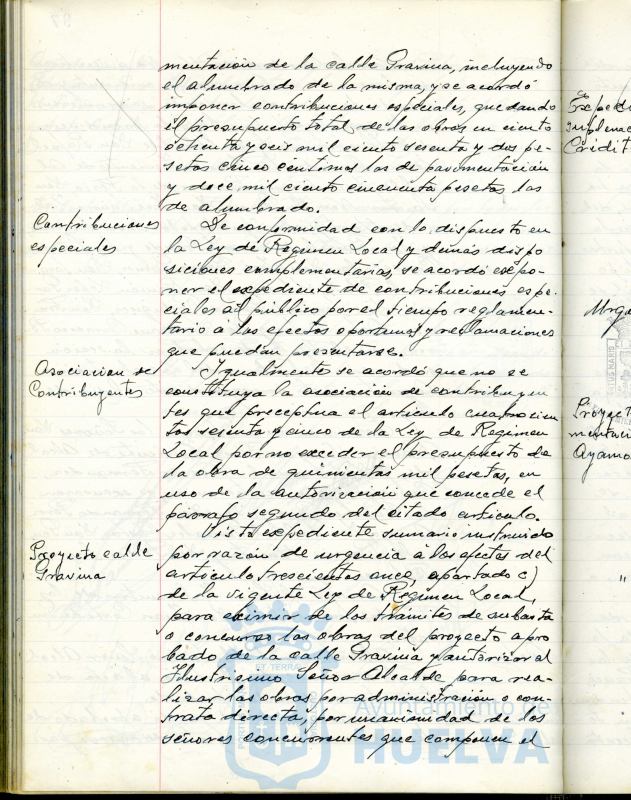 mentación de la calle Gravina, incluyendo
el alumbrado de la misma, y se acordó
imponer contribuciones especiales, quedando
el presupuesto total de las obras en ciento
ochenta y seis mil ciento sesenta y dos pe-
setas cinco centimos las de pavimentación
y doce mil ciento cincuenta pesetas las
de alumbrado.
Contribuciones
especiales
De conformidad con lo dispuesto en
la Ley de Regimen Local y demás dispo
siciones complementarias, se acordó expo-
ner el expediente de contribuciones espe-
ciales al público por el tiempo reglamen-
tario a los efectos oportunos y reclamaciones
que puedan presentarse.
Asociacion de
Contribuyentes
Igualmente se acordó que no se
constituya la asociación de contribuyen
tes que preceptua el articulo cuatrocien
tos sesenta y cinco de la Ley de Regimen
Local por no exceder el presupuesto de
la obra de quinientas mil pesetas, en
uso de la autorización que concede el
párrafo segundo del citado articulo.
Proyecto calle
Gravina
Visto expediente sumario instruido
por razón de urgencia á los efectos del
articulo trescientos once, apartado c)
de la vigente Ley de Regimen Local,
para eximir de los trámites de subasta
o concurso las obras del proyecto apro
bado de la calle Gravina y autorizar al
Ilustrisimo Señor Alcalde para rea-
lizar las obras por administración o con-
trata directa, por unanimidad de los
señores concurrentes que componen el
Ayuntamiento de
HUELVA
Exped
suplemen
Crédit
Urge
Proyect
mentaci
Ayamo
"